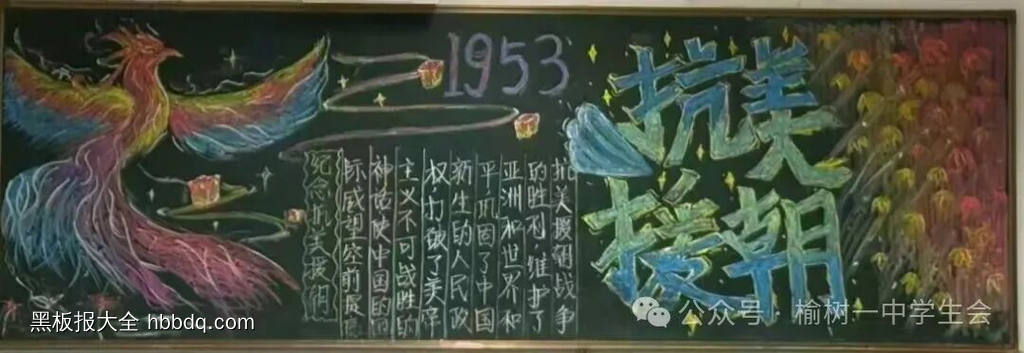 1953
抗美
援朝
抗美援朝战争
的胜利,维护了
亚洲和世界和
平巩固了中国
新生的人民政
权,打破了美帝
主义不可战胜的
神话使中国的国
际威望空前提高
纪念抗美援朝
黑板报大全 hbbdq.com
公众号·榆树一中学生会